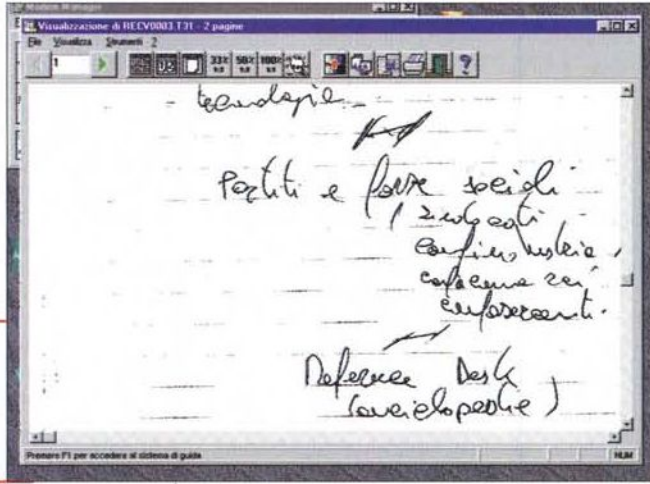 Modem Manager
Visualizzazione di RECV0003.T31 - 2 pagine
File Visualizza Strumenti - 2
1 33% 50% 100%
- tecnologie -
Partiti e forze sociali
( sindacati
confindustria,
confcommercianti.
Reference Desk
(enciclopedie)
Premere F1 per accedere al sistema di guida
NUM